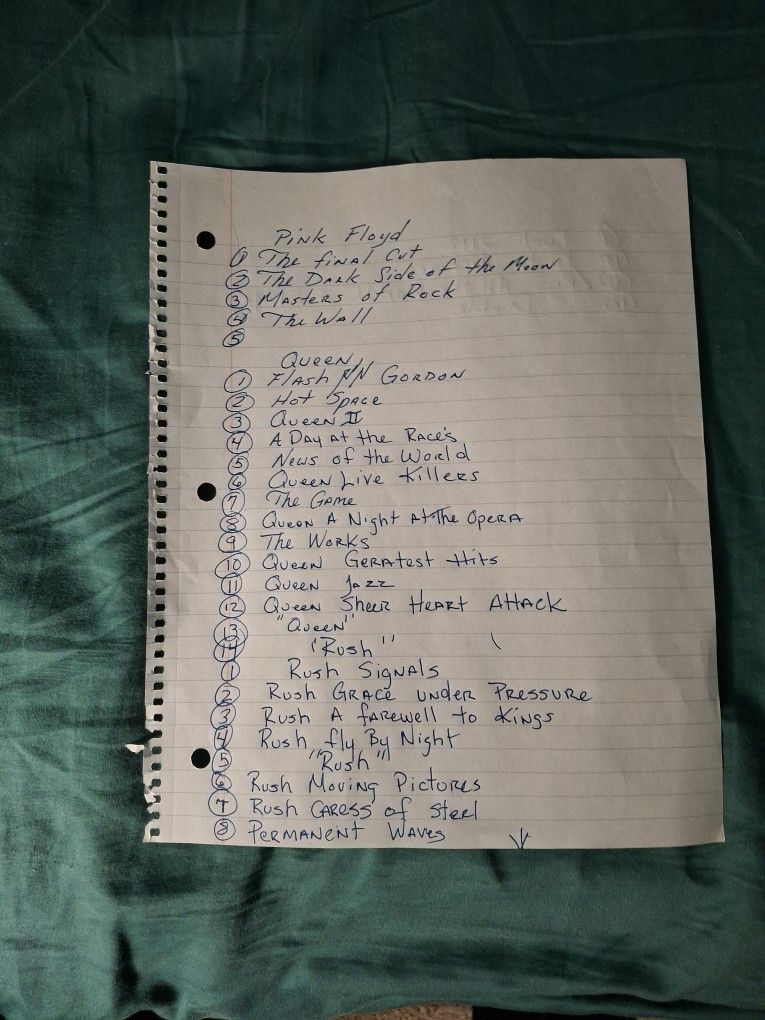 Pink Floyd
1 The final Cut
2 The Dark Side of the Moon
3 Masters of Rock
4 The Wall
5
Queen
1 Flash Gordon
2 Hot Space
3 Queen II
4 A Day At the Race's
5 News of the World
6 Queen Live Killers
7 The Game
8 Queen A Night At The Opera
9 The Works
10 Queen Geratest Hits
11 Queen Jazz
12 Queen Sheer Heart Attack
13 "Queen"
14 "Rush"
1 Rush Signals
2 Rush Grace under Pressure
3 Rush A farewell to Kings
4 Rush fly By Night
5 "Rush"
6 Rush Moving Pictures
7 Rush Caress of Steel
8 Permanent Waves